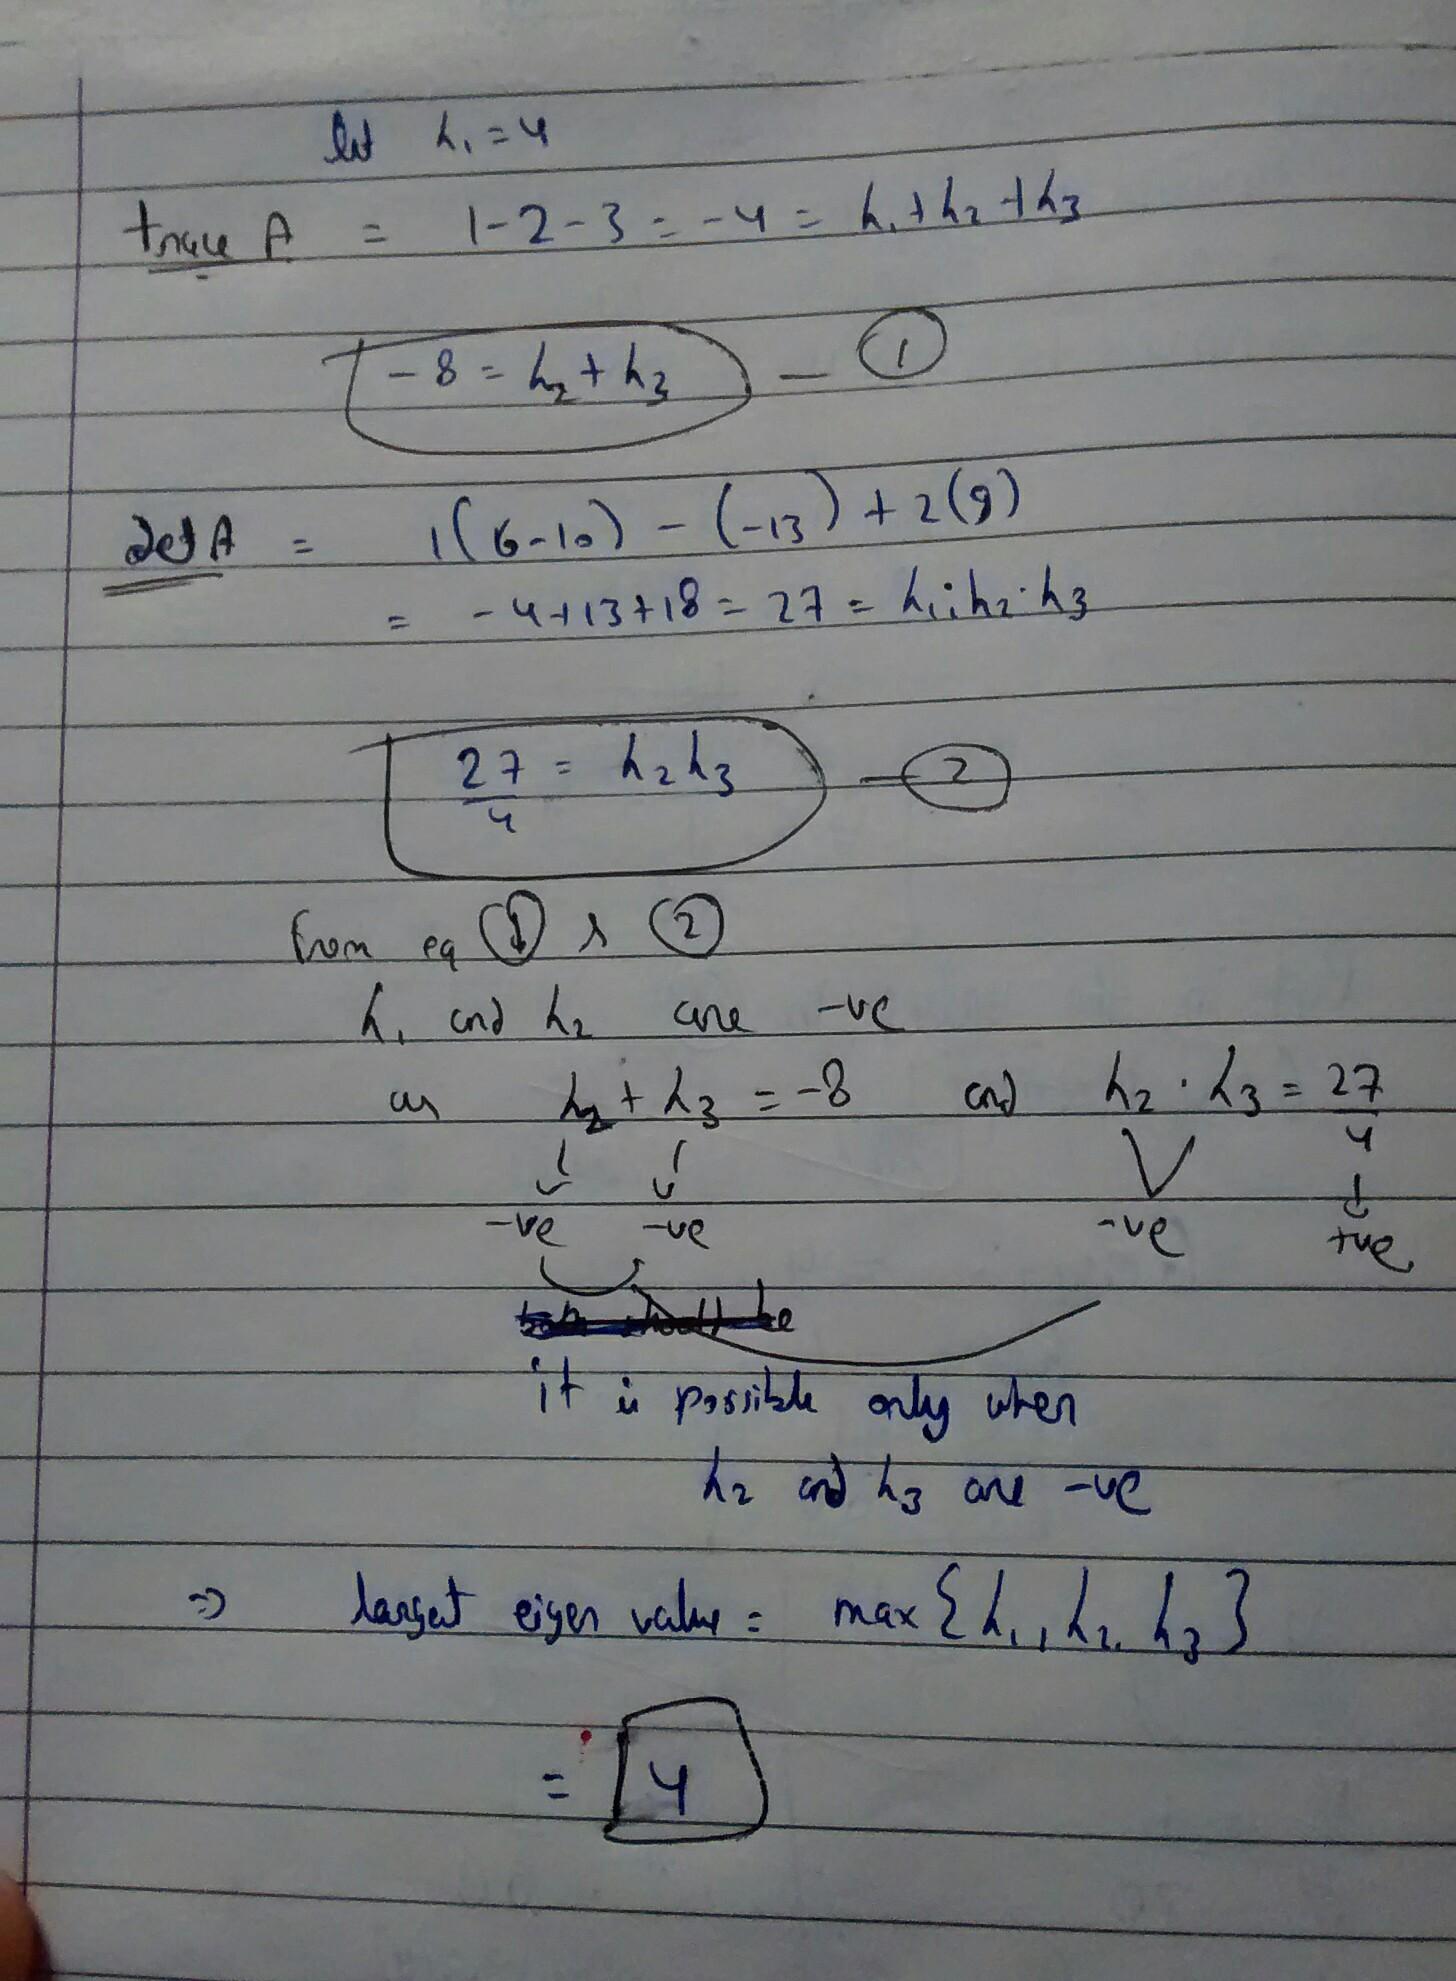 let λ₁ = 4
trace A = 1-2-3 = -4 = λ₁ + λ₂ + λ₃
-8 = λ₂ + λ₃ — ①
det A = 1(6-10) - (-13) + 2(9)
= -4+13+18 = 27 = λ₁·λ₂·λ₃
27/4 = λ₂λ₃ — ②
from eq ① & ②
λ₁ and λ₂ are -ve
as λ₂ + λ₃ = -8 and λ₂ · λ₃ = 27/4
-ve -ve -ve +ve
it is possible only when
λ₂ and λ₃ are -ve
⇒ largest eigen value = max {λ₁, λ₂, λ₃}
= 4